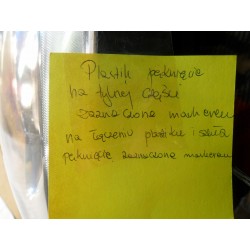 Plastik pęknięcie
na tylnej części
zaznaczone markerem
na łączeniu plastiku i szkła
pęknięcie zaznaczone markerem